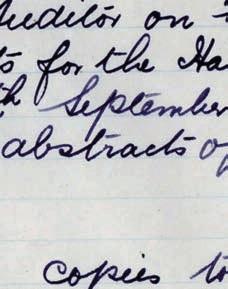 Auditor on
for the Ha
th September
abstracts of
copies to